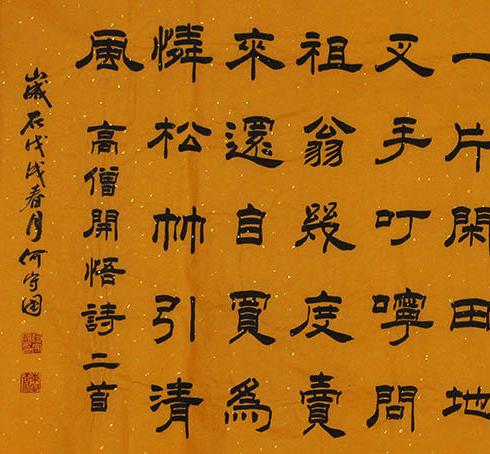 一片閑田地
叉手叮嚀問
祖翁幾度賣
來還自買為
憐松竹引清
風 高僧開悟詩二首
歲在戊戌春月何守国